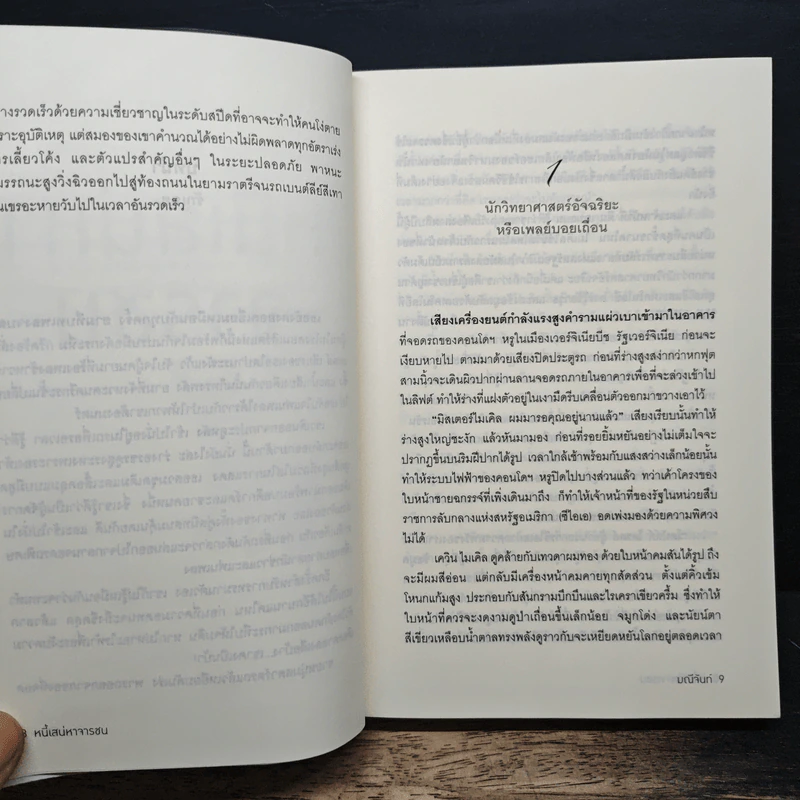 างรวดเร็วด้วยความเชี่ยวชาญในระดับสปีดที่อาจจะทำให้คนโง่ตาย
ราะอุบัติเหตุ แต่สมองของเขาคำนวณได้อย่างไม่ผิดพลาดทุกอัตราเร่ง
รเลี้ยวโค้ง และตัวแปรสำคัญอื่นๆ ในระยะปลอดภัย พาหนะ
มรรถนะสูงวิ่งฉิวออกไปสู่ท้องถนนในยามราตรีจนรถเบนต์ลีย์สีเทา
นเขรอะหายวับไปในเวลาอันรวดเร็ว
8 หนี้เสน่หาจารชน
1
นักวิทยาศาสตร์อัจฉริยะ
หรือเพลย์บอยเถื่อน
เสียงเครื่องยนต์กำลังแรงสูงคำรามแผ่วเบาเข้ามาในอาคาร
ที่จอดรถของคอนโดฯ หรูในเมืองเวอร์จิเนียบีช รัฐเวอร์จิเนีย ก่อนจะ
เงียบหายไป ตามมาด้วยเสียงปิดประตูรถ ก่อนที่ร่างสูงสง่ากว่าหกฟุต
สามนิ้วจะเดินผิวปากผ่านลานจอดรถภายในอาคารเพื่อที่จะล่วงเข้าไป
ในลิฟต์ ทำให้ร่างที่แฝงตัวอยู่ในเงามืดรีบเคลื่อนตัวออกมาขวางเอาไว้
“มิสเตอร์ไมเคิล ผมมารอคุณอยู่นานแล้ว” เสียงเรียบนั้นทำให้
ร่างสูงใหญ่ชะงัก แล้วหันมามอง ก่อนที่รอยยิ้มหยันอย่างไม่เต็มใจจะ
ปรากฏขึ้นบนริมฝีปากได้รูป เวลาใกล้เช้าพร้อมกับแสงสว่างเล็กน้อยนั้น
ทำให้ระบบไฟฟ้าของคอนโดฯ หรูปิดไปบางส่วนแล้ว ทว่าเค้าโครงของ
ใบหน้าชายฉกรรจ์ที่เพิ่งเดินมาถึง ก็ทำให้เจ้าหน้าที่ของรัฐในหน่วยสืบ
ราชการลับกลางแห่งสหรัฐอเมริกา (ซีไอเอ) อดเพ่งมองด้วยความพิศวง
ไม่ได้
เควิน ไมเคิล ดูคล้ายกับเทวดาผมทอง ด้วยใบหน้าคมสันได้รูป ถึง
จะมีผมสีอ่อน แต่กลับมีเครื่องหน้าคมคายทุกสัดส่วน ตั้งแต่คิ้วเข้ม
โหนกแก้มสูง ประกอบกับสันกรามบึกบึนและไรเคราเขียวครึ้ม ซึ่งทำให้
ใบหน้าที่ควรจะงดงามดูป่าเถื่อนขึ้นเล็กน้อย จมูกโด่ง และนัยน์ตา
สีเขียวเหลือบน้ำตาลทรงพลังดูราวกับจะเหยียดหยันโลกอยู่ตลอดเวลา
มณีจันท์ 9